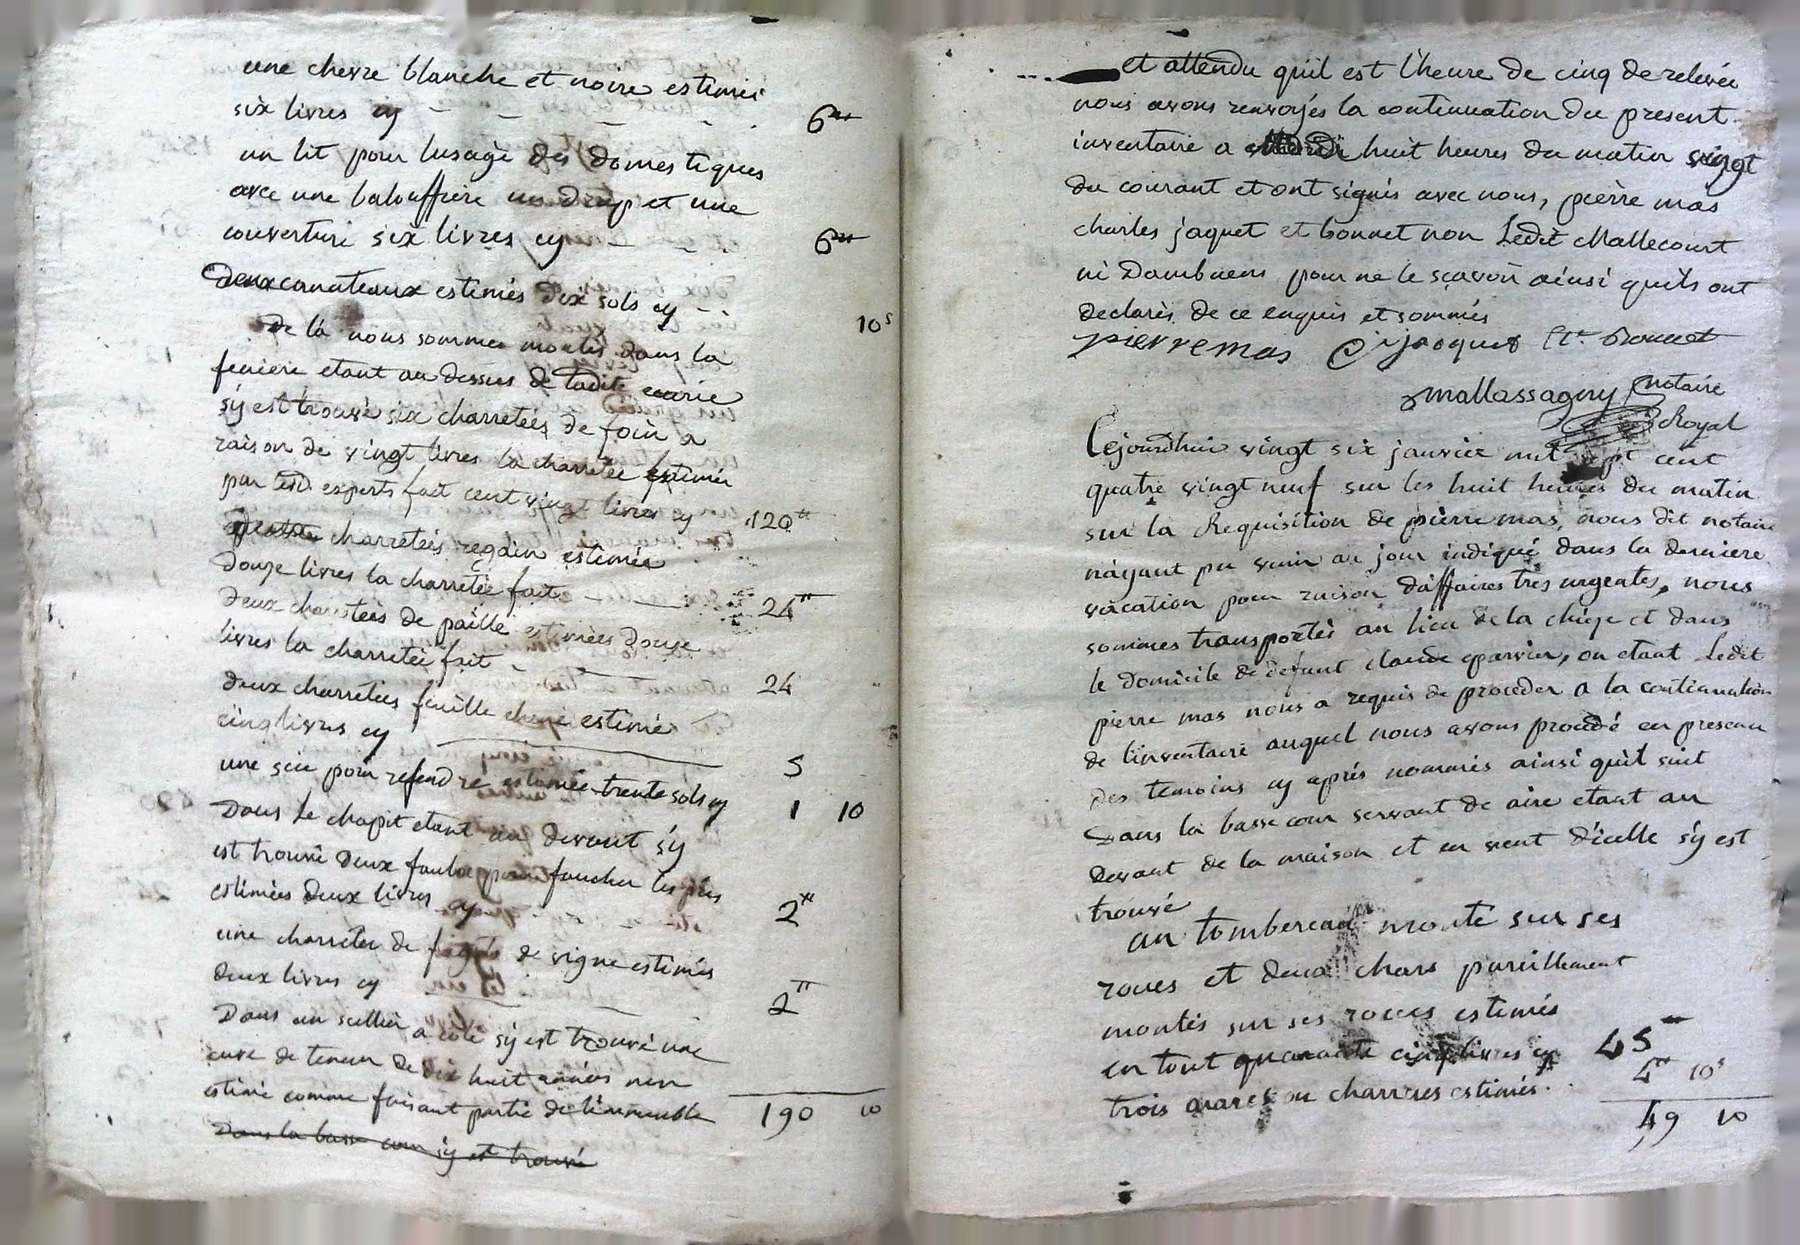 une chevre blanche et noire estimée
six livres cy 6tt
un lit pour lusage des domestiques
avec une balouffiere un drap et une
couverture six livres cy 6tt
Deux canateaux estimés dix sols cy 10s
De la nous sommes montés dans la
feniere etant au dessus de ladite ecurie
sy est trouvé six charretées de foin a
raison de vingt livres la charretée estimée
par lesd experts fait cent vingt livres cy 120tt
charretées regain estimée
Douze livres la charretée fait 24tt
Deux charretées de paille estimées douze
livres la charretée fait 24
Deux charretées feuille chene estimée
cinq livres cy 5
une scie pour refendre estimée trente sols cy 1 10
Dans le chapit etant au devant sy
est trouvé deux faulx pour faucher les prés
estimées deux livres cy 2tt
une charretée de fagots de vigne estimés
deux livres cy 2tt
Dans un scellier a coté sy est trouvé une
cuve de teneur de dix huit années non
estimé comme faisant partie de l'immeuble 190 10
Dans la basse cour sy est trouvé
et attendu quil est l'heure de cinq de relevée
nous avons renvoyés la continuation du present
inventaire a huit heures du matin vingt
du courant et ont signés avec nous, pierre mas
charles jaquet et bonnet non Ledit Mallecourt
ni Dambuens pour ne le scavoir ainsi quils ont
declarés de ce enquis et sommés
pierre mas C jjaoquet Bonnet
Mallassagny notaire
Royal
Cejourdhui vingt six janvier mil sept cent
quatre vingt neuf sur les huit heures du matin
sur la Requisition de pierre mas, nous dit notaire
nayant pu venir au jour indiqué dans la derniere
vacation pour raison d'affaires très urgentes, nous
sommes transportés au lieu de la chieze et dans
le domicile de defunt claude eparvier, ou etant Ledit
pierre mas nous a requis de proceder a la continuation
de l'inventaire auquel nous avons procédé en presence
des temoins cy après nommés ainsi qu'il suit
Dans la basse cour servant de aire etant au
devant de la maison et en vent d'icelle sy est
trouvé
un tombereau monté sur ses
roues et deux chars pareillement
montés sur ses roues estimés
en tout quarante cinq livres cy 45
trois arares ou charrues estimés 4tt 10s
49 10